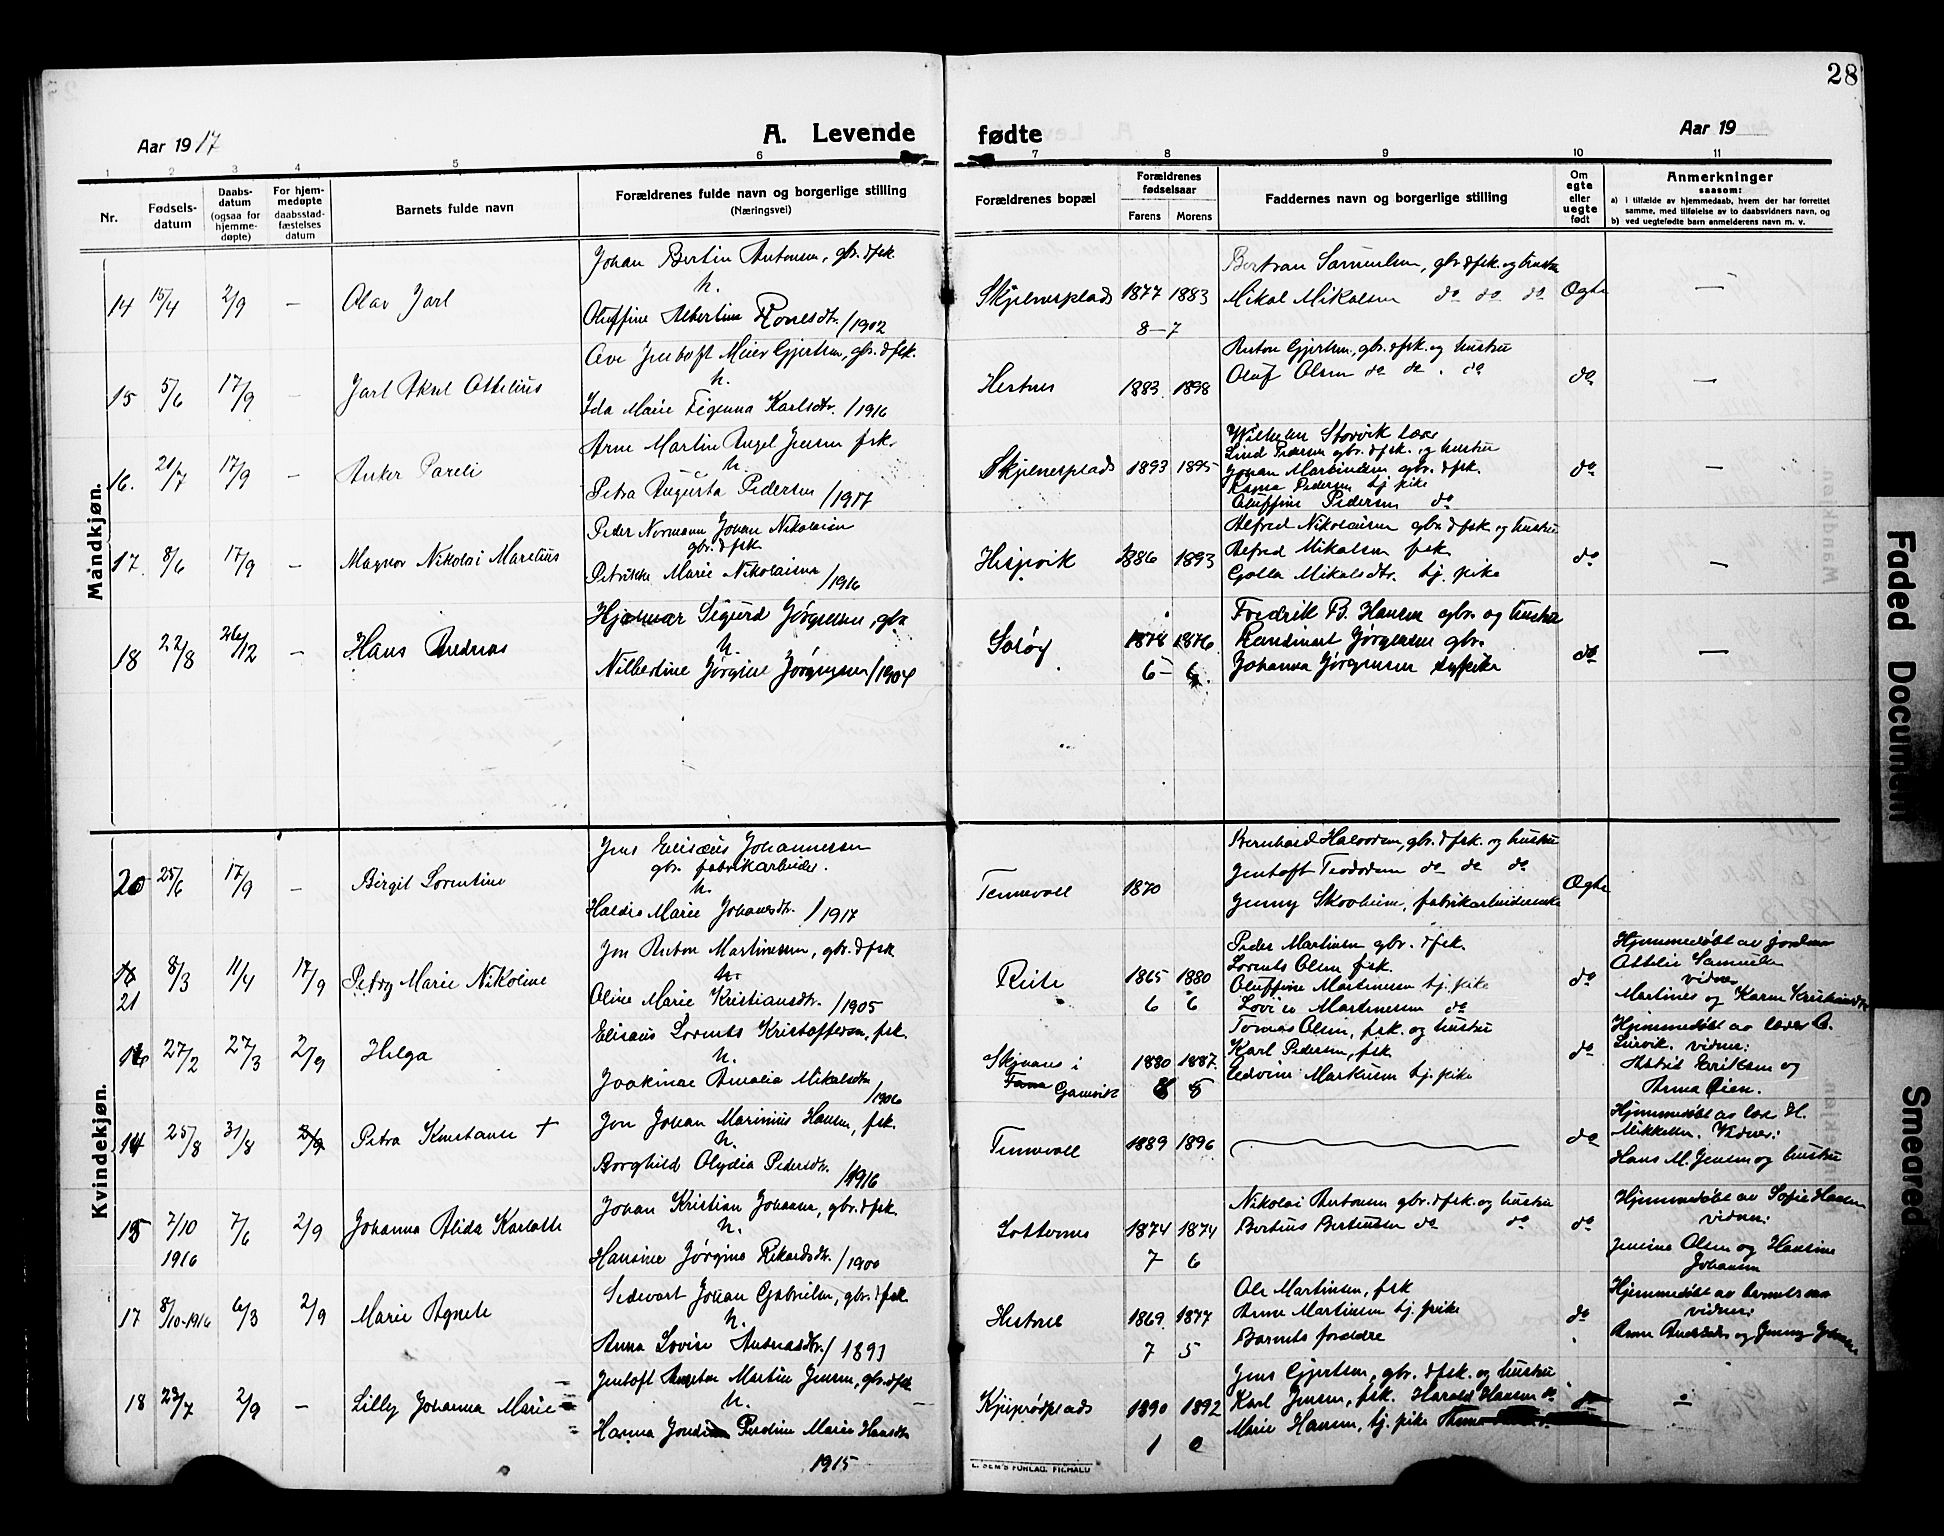 28
Aar 1917
A. Levende fødte
Aar 19
1 2 3 4 5 6 7 8 9 10 11
Nr.
Fødsels-
datum
Daabs-
datum
(ogsaa for
hjemme-
døpte)
For hjem-
medøpte
daabsstad-
fæstelses
datum
Barnets fulde navn
Forældrenes fulde navn og borgerlige stilling
(Næringsvei)
Forældrenes bopæl
Forældrenes
fødselsaar
Farens Morens
Faddernes navn og borgerlige stilling
Om
egte
eller
uegte
født
Anmerkninger
saasom:
a) i tilfælde av hjemmedaab, hvem der har forrettet
samme, med tilføielse av to daabsvidners navn, og
b) ved uegtefødte barn anmelderens navn m. v.
Mandkjøn.
Johan Bertin Antonsen, gbr. & fsk.
h.
14 15/4 2/9 — Olav Jarl
Oluffine Albertine /1902
Skjelnesplads 1877 1883
8 — 7
Bertran Samuelsen, gbr & fsk. og hustru
Mikal Mikalsen do do do
Ægte —
Ove Jentoft Meier Gjertsen, gbr. & fsk.
h.
15 5/6 17/9 — Jarl Ottelius
Ida Marie Karlsdtr. /1916
Hestnes 1883 1898
Anton Gjertsen, gbr. & fsk. og hustru
Oluf Olsen do do do
do —
Arne Martin Angel Jensen fsk.
h.
16. 21/7 17/9 — Anker Pareli
Petra Augusta Pedersen /1917
Skjelnesplads 1893 1895
Wilhelm Storvik lærer
Pedersen gbr. & fsk. og hustru
Johan Martinsen gbr. & fsk.
Pedersen tj. pike
Oluffine Pedersen do
do —
Peder Normann Johan Nikolaisen
gbr. & fsk.
17. 8/6 17/9 — Magnor Nikolai Marelius
Marie Nikolaisen /1916
1886 1893
Alfred Nikolaisen gbr. & fsk. og hustru
Alfred Mikalsen fsk.
Golla Mikalsdtr. tj. pike
do —
Hjalmar Sigurd Jørgensen, gbr.
h.
18 22/8 26/12 — Hans Andreas
Nilberdine Jørgine Jørgensen /1904
Soløy 1878 1876
6 — 6
Fredrik B. Hansen gbr. og hustru
Jørgensen gbr.
Johanna Jørgensen sypike
do —
Kvindekjøn.
Jens Elisæus Johannesen
gbr. fabrikarbeider.
h.
20 25/6 17/9 — Birgit Lorentine
Haldis Marie Johansdtr. /1917
Tennevoll 1870
Bernhard Halvorsen, gbr. & fsk. og hustru
Jentoft Teodorsen do do do
Jenny Skovheim, fabrikarbeiderske
Ægte
Jon Anton Martinessen, gbr. & fsk
h.
21 8/3 11/4 17/9 Petry Marie Nikoline
Oline Marie Kristiansdtr. /1905
1865 1880
6 6
Peder Martinsen gbr. & fsk.
Lorents Olsen fsk.
Oluffine Martinessen tj. pike
Martinessen do
do
Hjemmedøbt av jordmor
Ottelie Samuelsen
vidner
Martines og Karen
Elisæus Lorents Kristoffersen, fsk.
h.
16 27/2 27/3 2/9 Helga
Amalia Mikalsdtr. /1906
Skjenans i
Gamvik 1880 1887
8 5
Tomas Olsen, fsk. og hustru
Karl Pedersen, fsk
Edvine Markusen tj. pike
do
Hjemmedøbt av lærer O.
Lervik. vidner:
Astrid Eriksen og
Anna Øien.
Jon Johan Marinius Hansen, fsk.
h.
14 25/8 31/8 Petra Konstanse +
Borghild Olydia Pedersdtr. /1916
Tennevoll 1889 1896
do
Hjemmedøbt av lær. H.
Mikkelsen. Vidner:
Hans M. Jensen og hustru
Johan Kristian Johansen, gbr. & fsk.
h.
15 7/10 7/6 2/9 Johanna Alida Karlotte
1916
Hansine Jørgine Rikardsdtr. /1900
1874 1874
7 6
Nikolai Antonsen gbr. & fsk. og hustru
Bertius Bertinssen do do
do
Hjemmedøbt av Sofie Hansen
vidner:
Jensine Olsen og Hansine
Johansen
Sedevart Johan Gabrielsen, gbr. & fsk.
h.
17 8/10-1916 6/3 2/9 Marie Agnete
Anna Lovise Andreasdtr. /1893
Hestnes 1869 1877
7 5
Ole Martinsen, fsk
Anna Martinsen tj. pike
Barnets forældre
do
Hjemmedøbt av
vidner:
Anna og Jenny
Jentoft Martin Jensen, gbr. & fsk.
h.
18 23/7 2/9 — Lilly Johanna Marie
Hanna Perdine Marie Hansdtr
1915
1890 1892
1 0
Jens Gjertsen, gbr. & fsk. og hustru
Karl Jensen, fsk. Harald Hansen do
Marie Hansen, tj. pike
do —
E. SEM'S FORLAG, FR.HALD
Faded Document
Smeared